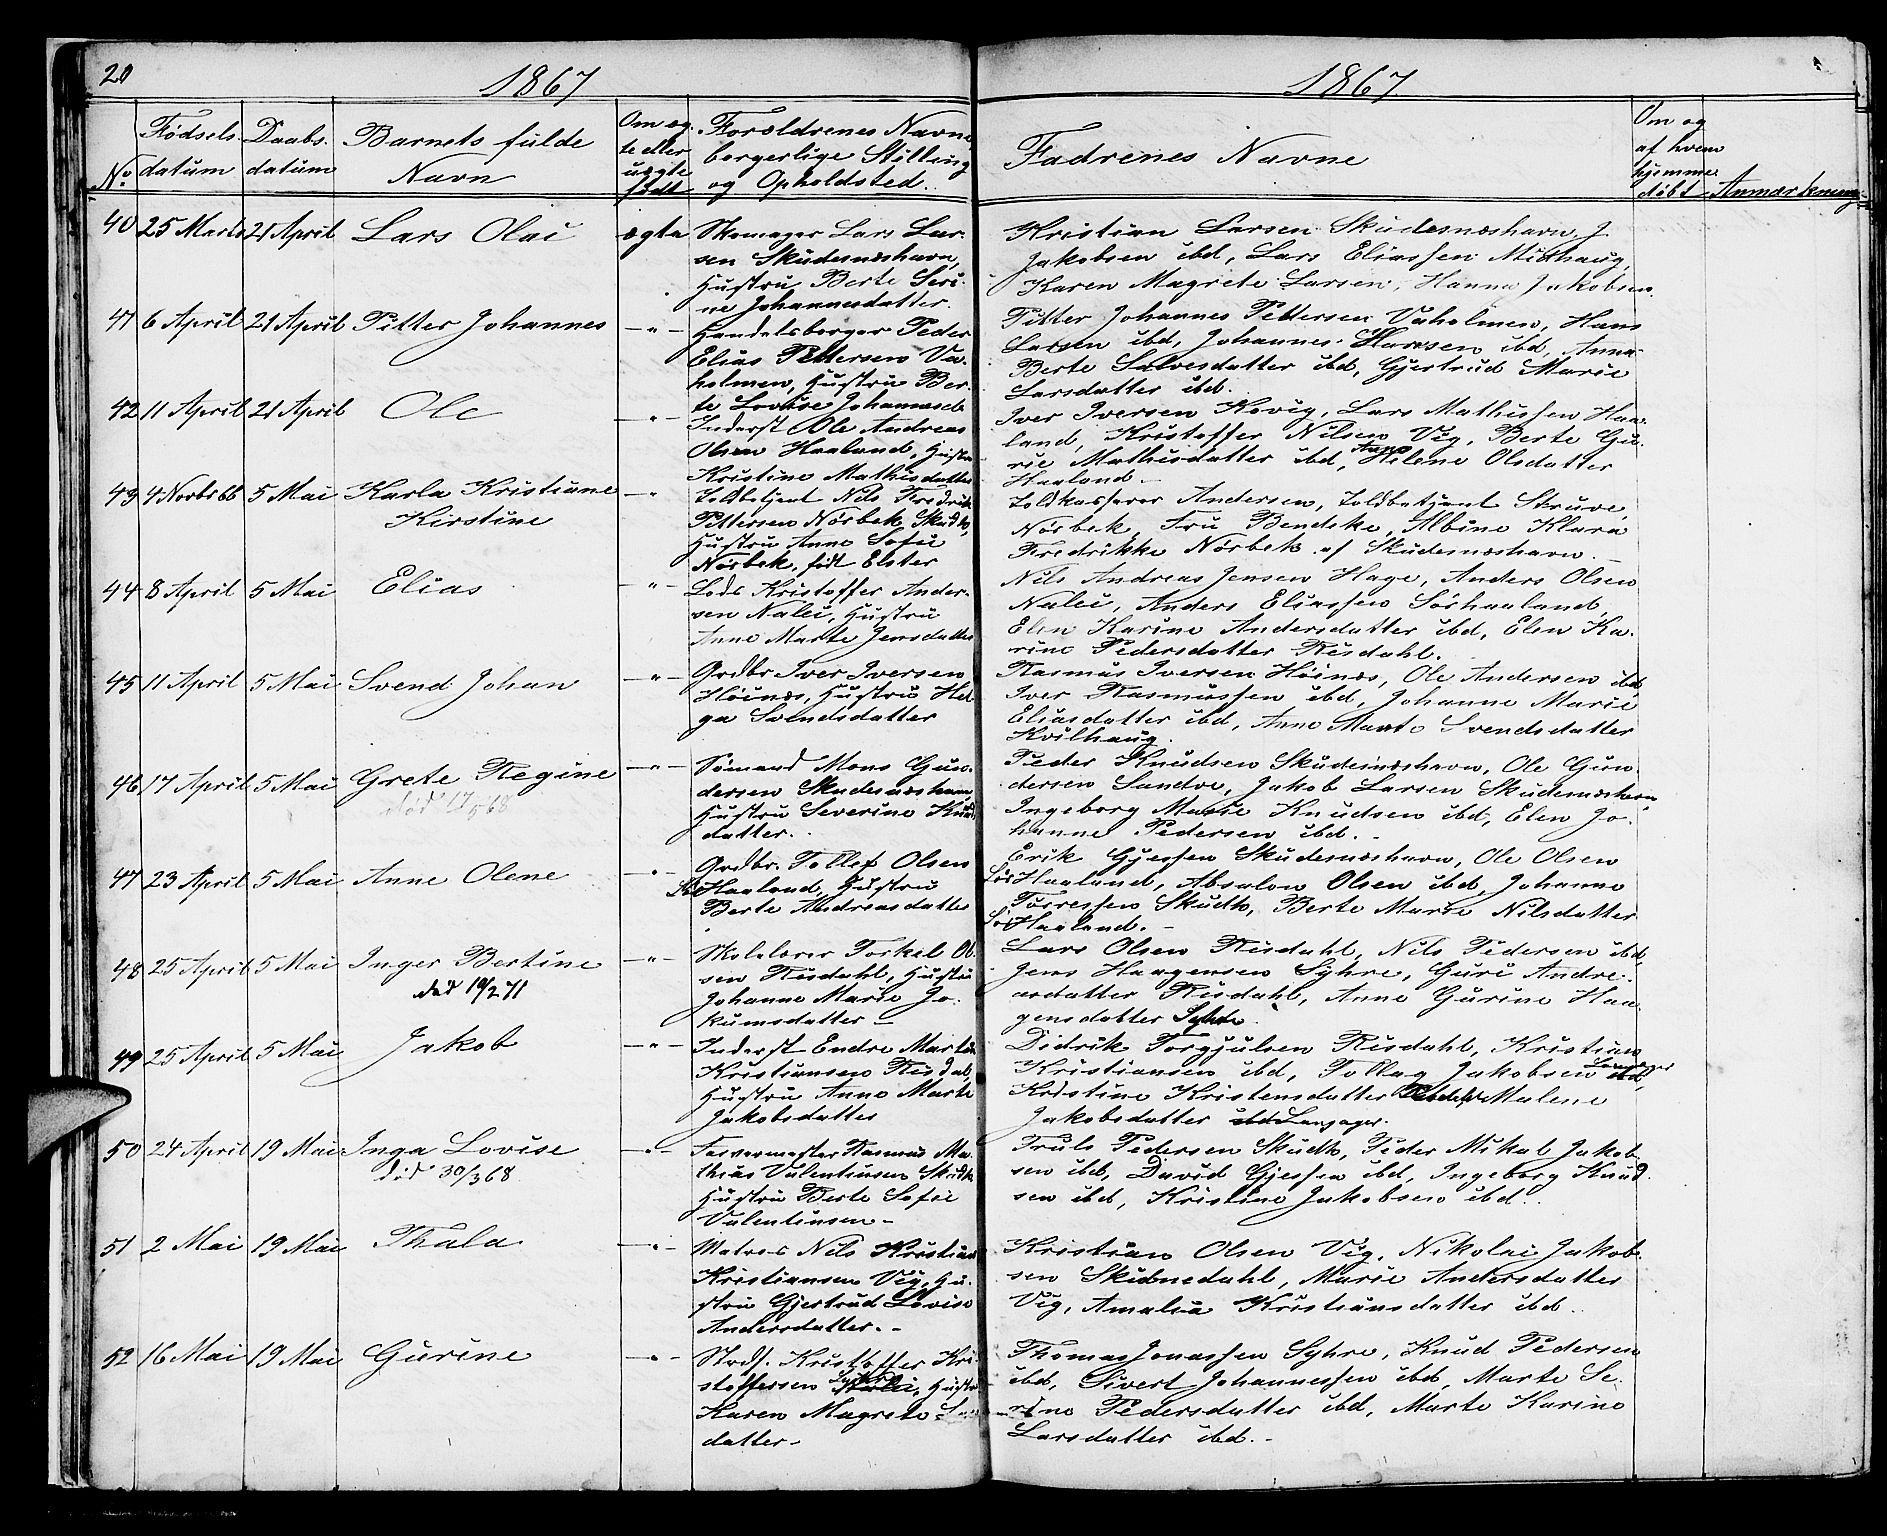 20
1867
1867
No. Fødsels datum Daabs. datum Barnets fulde Navn Om æg te eller uægte født Forældrenes Navne borgerlige Stilling og Opholdsted. Fadrenes Navne Om og af hvem hjemme døbt Anmærkning
40 25 Marts 21 April Lars Olai ægte
Skomager Lars Lar-
sen Skudesnæshavn,
Hustru Berte Seri-
ne Johannesdatter.
Kristian Larsen Skudesnæshavn, J.
Jakobsen ibd, Lars Eliassen Midhaug,
Karen Magrete Larsen, Hanna Jakobsen.
41 6 April 21 April Pitter Johannes -"-
Handelsborger Peder
Elias Pettersen Va-
holmen, Hustru Ber-
te Lovise Johannesd.
Pitter Johannes Pettersen Vaholmen, Hans
Larsen ibd, Johannes Hansen ibd, Anna
Berte Salvesdatter ibd, Gjertrud Marie
Larsdatter ibd.
42 11 April 21 April Ole -"-
Inderst Ole Andreas
Olsen Haaland, Hustru
Kristine Mathisdatter
Iver Iversen Kovig, Lars Mathissen Haa-
land, Kristoffer Nilsen Vig, Berte Gu-
rie Mathisdatter ibd, Helene Olsdatter
Haaland.-
43 4 Novbr 66 5 Mai Karla Kristiane
Kirstine -"-
Toldbetjent Nils Fredrik
Pittersen Nørbek, Skudh,
Hustru Anne Sofie
Nørbek, født Elster
Toldkasserer Andersen, Toldbetjent Struve,
Nørbek, Fru Bendeke, Albine Klara
Fredrikke Nørbek af Skudesnæshavn.-
44 8 April 5 Mai Elias -"-
Lods Kristoffer Ander-
sen Nalei, Hustru
Anne Marte Jensdatter
Nils Andreas Jensen Hage, Anders Olsen
Nalei, Anders Eliassen Sørhaaland,
Elen Karine Andersdatter ibd, Elen Ka-
rine Pedersdatter Risdahl.
45 11 April 5 Mai Svend Johan -"-
Grdbr Iver Iversen
Høinæs, Hustru Hel-
ga Svendsdatter
Rasmus Iversen Høinæs, Ole Andersen ibd
Iver Rasmussen ibd, Johanne Marie
Eliasdatter ibd, Anne Marte Svendsdatter
Kvilhaug.
46 17 April 5 Mai Grete Regine -"-
død 17/5 68
Sømand Mons Gun-
dersen Skudesnæshavn,
Hustru Severine Knuds
datter.
Peder Knudsen Skudesnæshavn, Ole Gun-
dersen Sandve, Jakob Larsen Skudesnæshavn,
Ingeborg Marie Knudsen ibd, Elen Jo-
hanne Pedersen ibd.-
47 23 April 5 Mai Anne Olene -"-
Grdbr. Tollef Olsen
Sør Haaland, Hustru
Berte Andreasdatter
Erik Gjessen Skudesnæshavn, Ole Olsen
Sør Haaland, Absalon Olsen ibd, Johanne
Torressen Skudh, Berte Marie Nilsdatter
Sør Haaland.-
48 25 April 5 Mai Inger Bertine -"-
død 19/2 71
Skolelærer Torkel Ol-
sen Risdahl, Hustru
Johanne Marie Jo-
kumsdatter-
Lars Olsen Risdahl, Nils Pedersen ibd,
Jens Haagensen Syhre, Guri Andre-
asdatter Risdahl, Anne Gurine Haa-
gensdatter Syhre.
49 25 April 5 Mai Jakob -"-
Inderst Endre Martin
Kristiansen Risdal,
Hustru Anne Marte
Jakobsdatter
Didrik Torgjulsen Risdahl, Kristian
Kristiansen ibd, Tollag Jakobsen Langager
Kristine Kristensdatter Malene
Jakobsdatter ibd Langager.
50 24 April 19 Mai Inga Lovise -"-
død 30/3 68
Farvermester Rasmus Ma-
thias Valentinsen Skudh
Hustru Berte Sofie
Valentinsen-
Truls Pedersen Skudh, Peder Mikal Jakob-
sen ibd, David Gjessen ibd, Ingeborg Knud-
sen ibd, Kristine Jakobsen ibd.
51 2 Mai 19 Mai Thala -"-
Matros Nils Kristian
Kristiansen Vig, Hu-
stru Gjertrud Lovise
Andersdatter.-
Kristian Olsen Vig, Nikolai Jakob-
sen Skudnedahl, Marie Andersdatter
Vig, Amalia Kristiansdatter ibd.
52 16 Mai 19 Mai Gurine -"-
Strds. Kristoffer Kri-
stoffersen Syhre, Hustru
Karen Magrete
datter-
Thomas Jonassen Syhre, Knud Pedersen
ibd, Sivert Johannessen ibd, Marte Se-
rine Pedersdatter ibd, Marte Karine
Larsdatter ibd.-